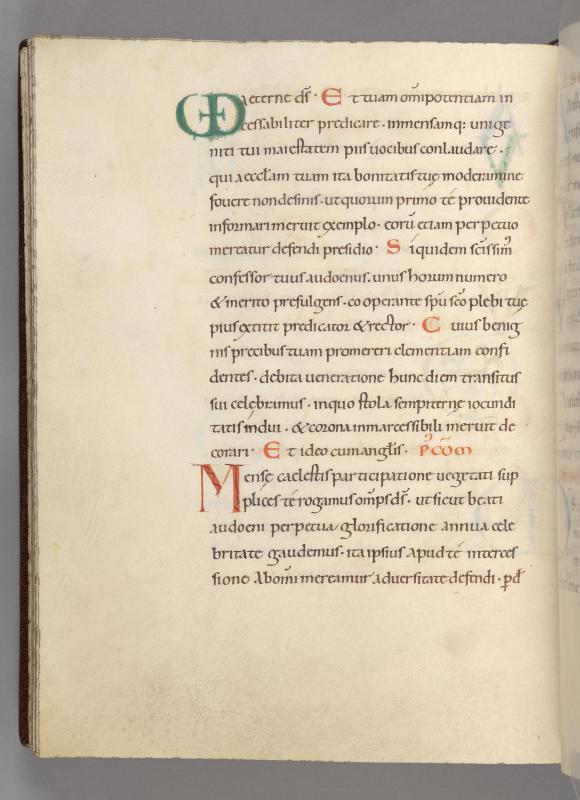 VD aeterne d̅s̅ · Et tuam om̅ipotentiam in
cessabiliter predicare · inmensamq: unige
niti tui maiestatem piis uocibus conlaudare ·
qui aeccl̅am tuam ita bonitatis tuę moderamine
fouere non desinis · ut quorum primo té prouidente
informari meruit exemplo · coru̅ etiam perpetuo
mereatur defendi presidio · Siquidem sc̅issim̅
confessor tuus audoenus · unus horum numero
& merito prefulgens · cooperante sp̅u sc̅o plebi tuę
pius extitit predicator & rector · Cuius benig
nis precibus tuam promereri clementiam confi
dentes · debita ueneratione hunc diem transitus
sui celebramus · in quo stola sempiterne iocundi
tatis indui · & corona inmarcessibili meruit de
corari · Et ideo cum angl̅is · P̉ CO̅M
Mensę caelestis participatione uegetati sup
plices té rogamus om̅ps d̅s̅ · ut sicut beati
audoeni perpetua glorificatione annua cele
britate gaudemus · ita ipsius apud té interces
sione ab om̅i mereamur aduersitate defendi · p̲ d̅